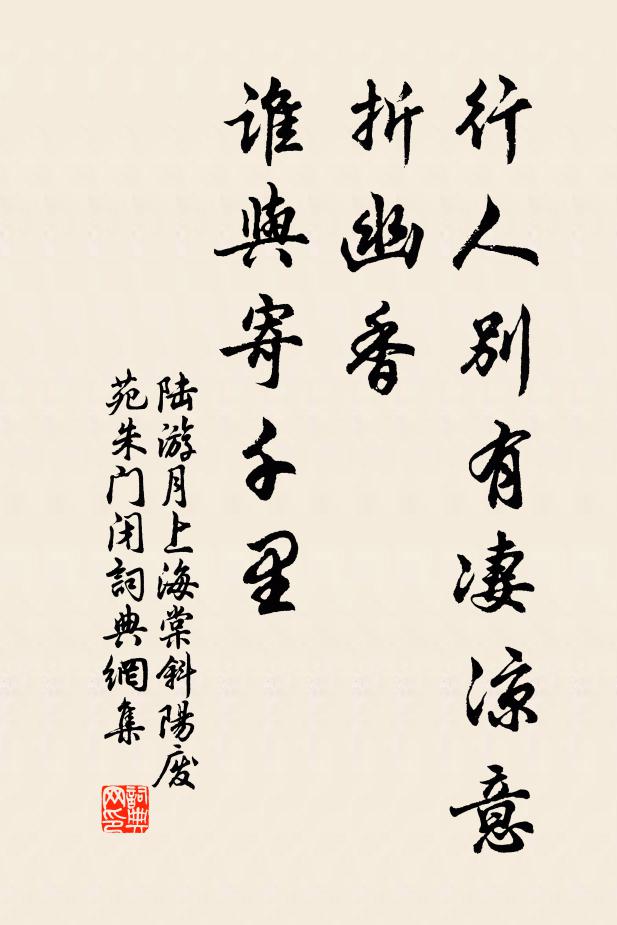 行人別有凄涼意
折幽香
誰與寄千里
陆游月上海棠斜陽废
苑朱门闭詞典網集
詞典
网印